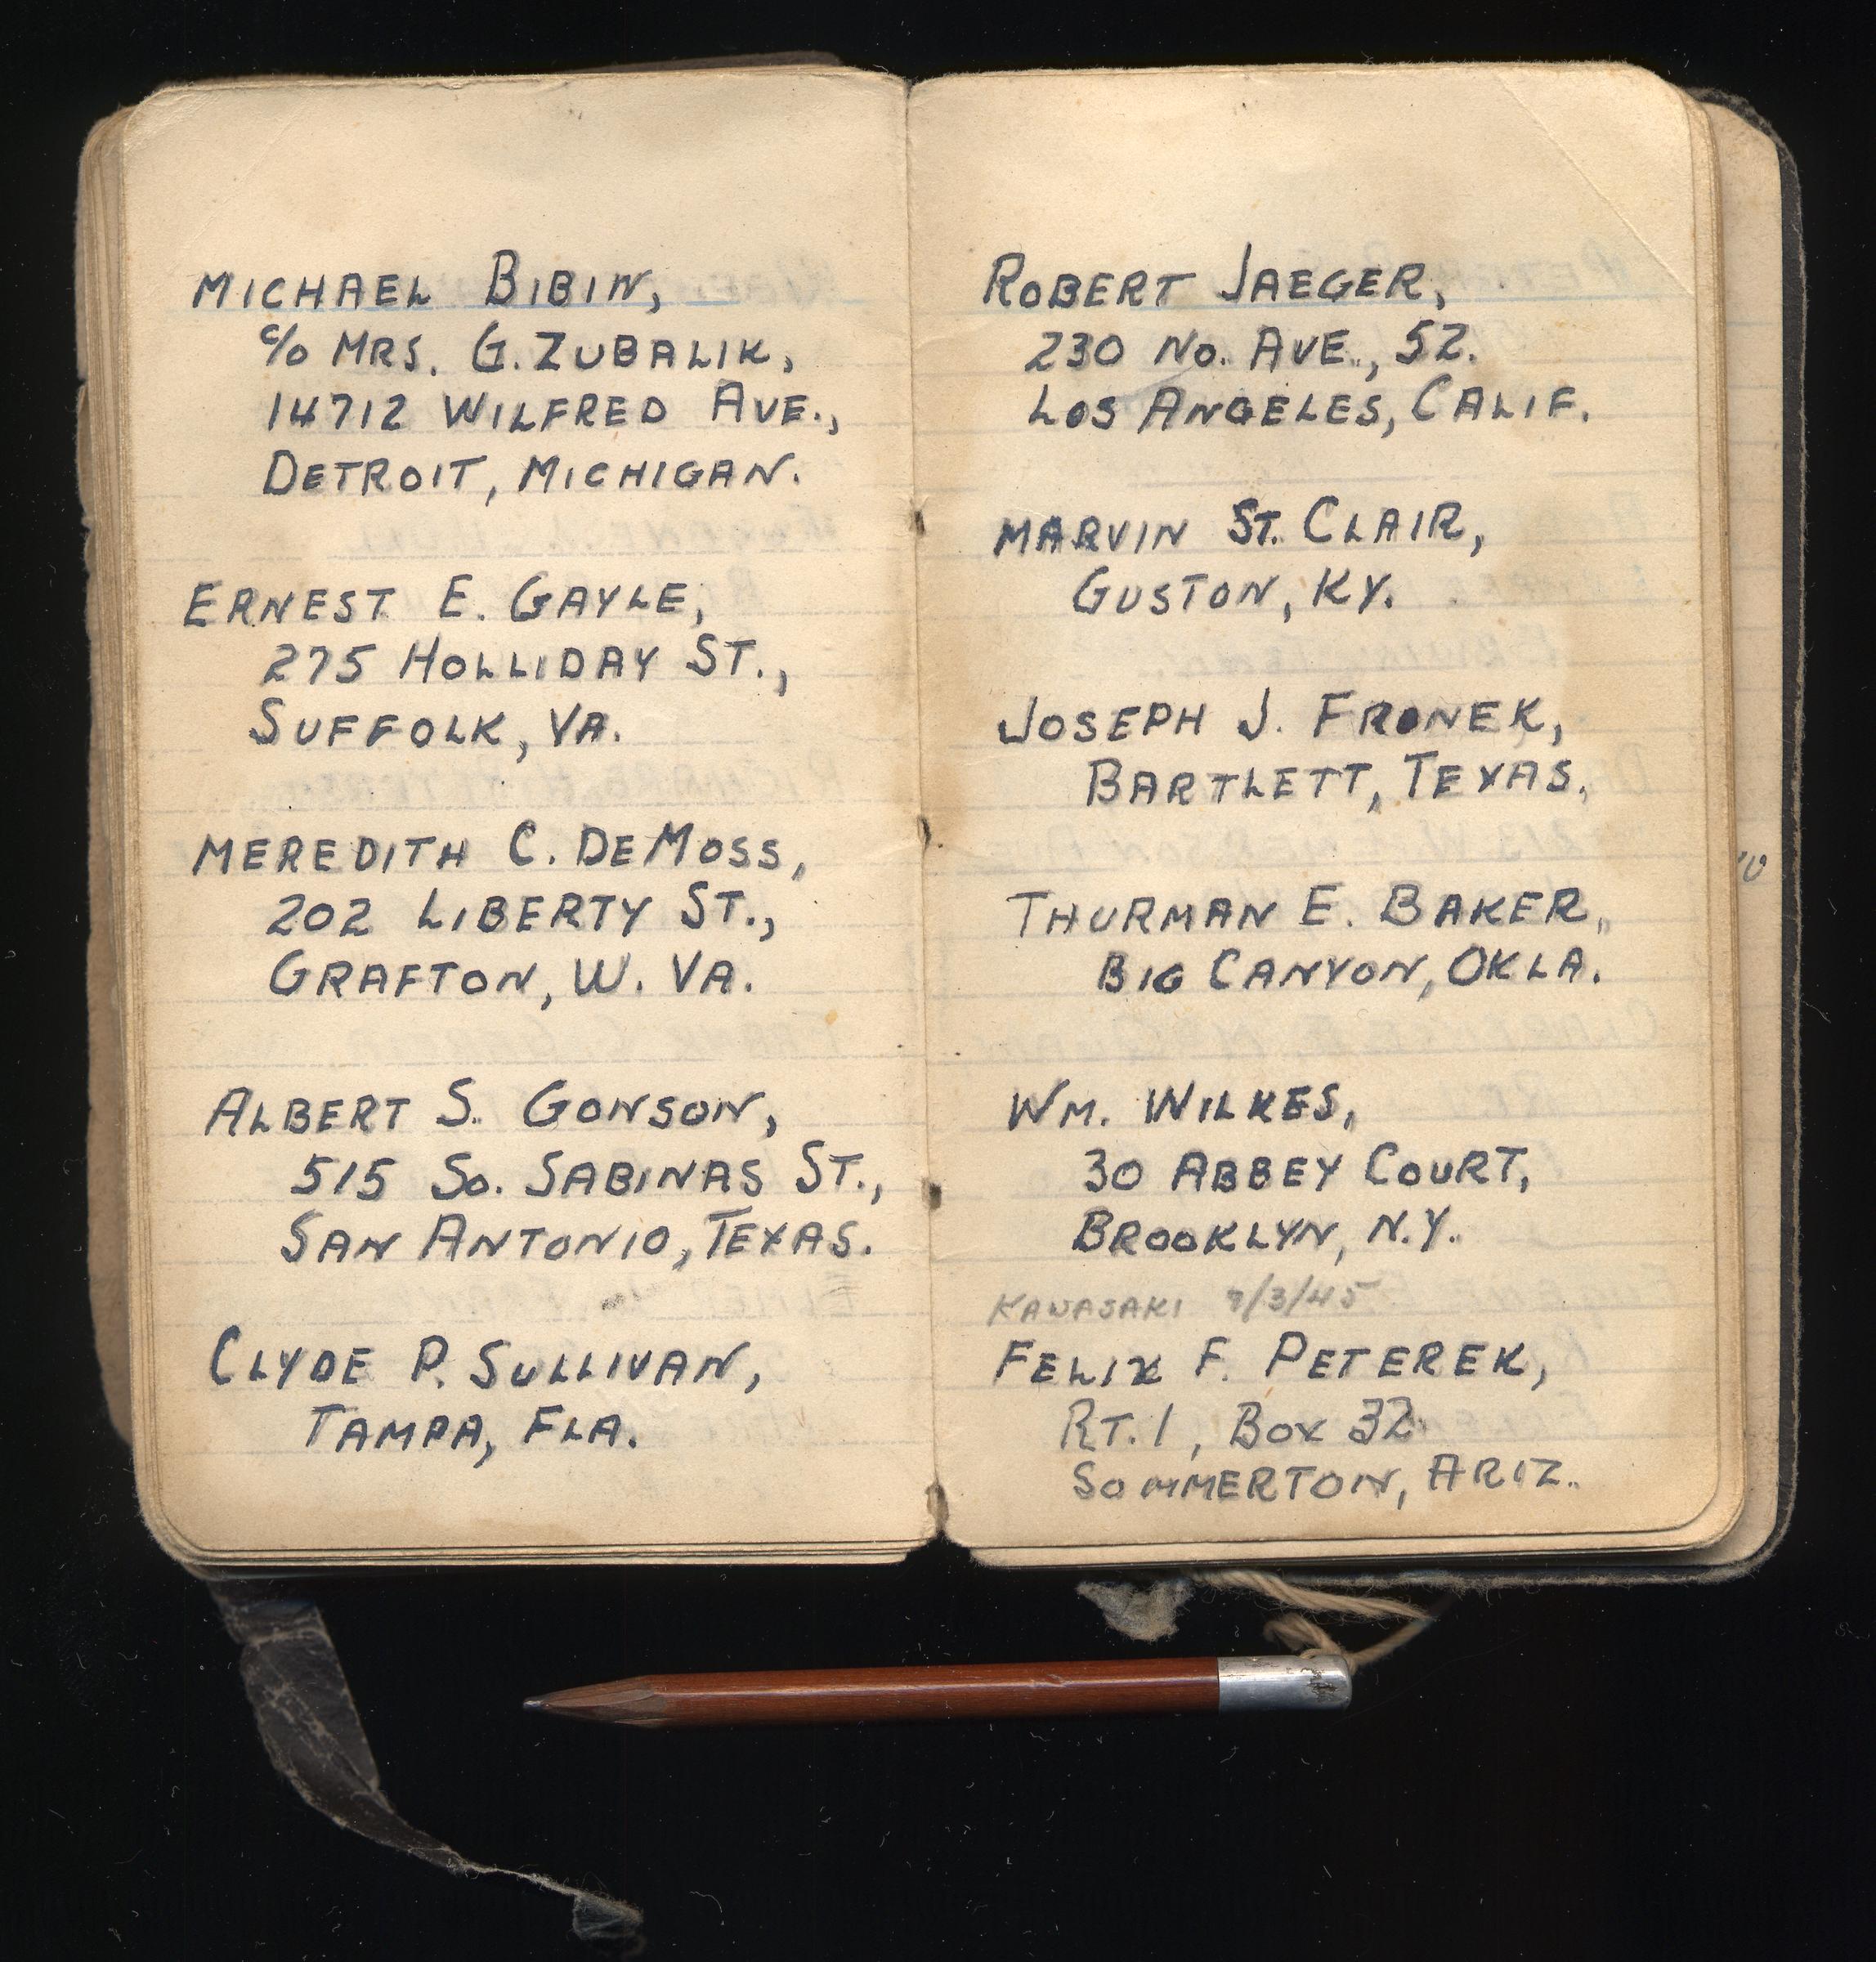 MICHAEL BIBIN,
c/o MRS. G. ZUBALIK,
14712 WILFRED AVE.,
DETROIT, MICHIGAN.
ERNEST E. GAYLE,
275 HOLLIDAY ST.,
SUFFOLK, VA.
MEREDITH C. DEMOSS,
202 LIBERTY ST.,
GRAFTON, W. VA.
ALBERT S. GONSON,
515 SO. SABINAS ST.,
SAN ANTONIO, TEXAS.
CLYDE P. SULLIVAN,
TAMPA, FLA.
ROBERT JAEGER,
230 NO. AVE., 52.
LOS ANGELES, CALIF.
MARVIN ST. CLAIR,
GUSTON, KY.
JOSEPH J. FRONEK,
BARTLETT, TEXAS.
THURMAN E. BAKER,
BIG CANYON, OKLA.
WM. WILKES,
30 ABBEY COURT,
BROOKLYN, N.Y.
KAWASAKI
FELIX F. PETEREK,
RT. 1, BOX 32
SOMMERTON, ARIZ.